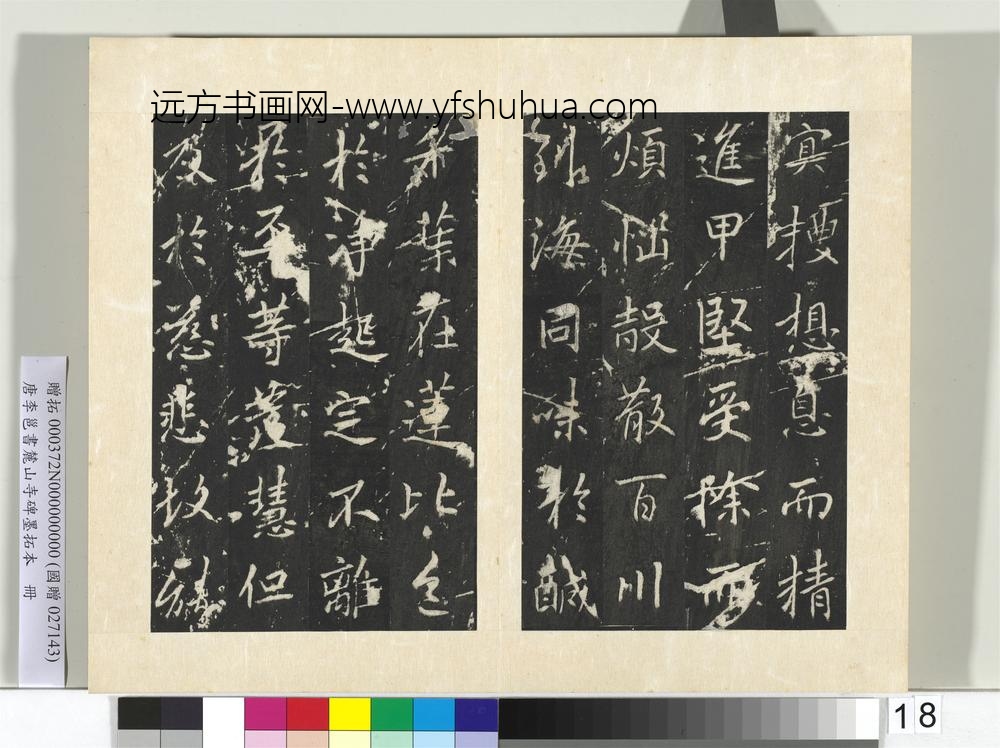 远方书画网-www.yfshuhua.com
冥搜想意而精
進甲堅受而
煩惱散百川
到海同味於鹹
葉在蓮比色
於淨起定不離
於平等發慧但
及於慈悲故
贈拓 000372N000000000 (國贈 027143)
唐李邕書麓山寺碑墨拓本 冊
18